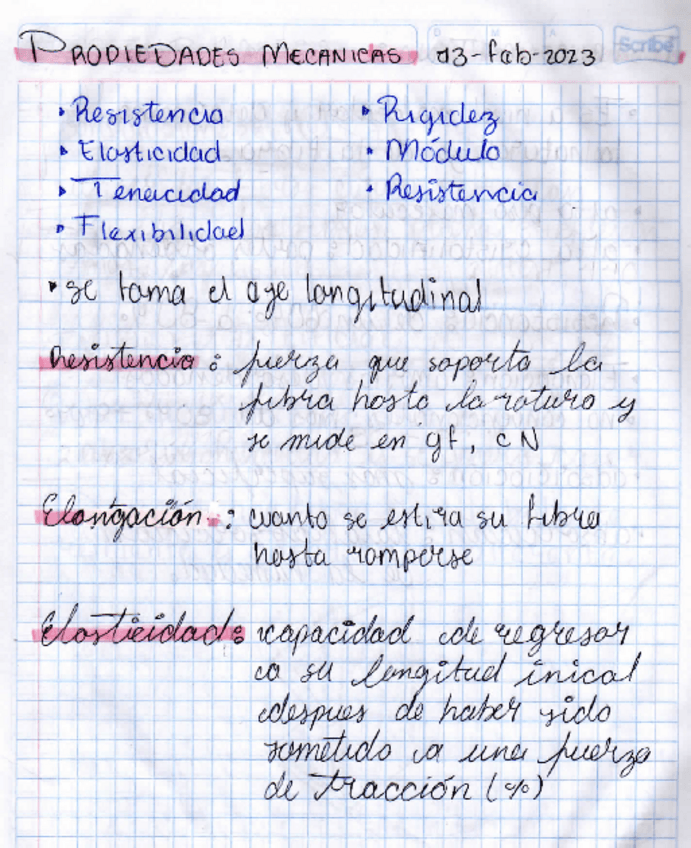 PROPIEDADES MECANICAS 03-feb-2023
Scribe
• Resistencia • Rigidez
• Elasticidad • Módulo
• Tenacidad • Resistencia
• Flexibilidad
• se toma el eje longitudinal
Resistencia: fuerza que soporta la
fibra hasta la rotura y
se mide en gf, cN
Elongación: cuanto se estira su fibra
hasta romperse
Elasticidad: capacidad de regresar
a su longitud inical
despues de haber sido
sometido a una fuerza
de tracción (%)